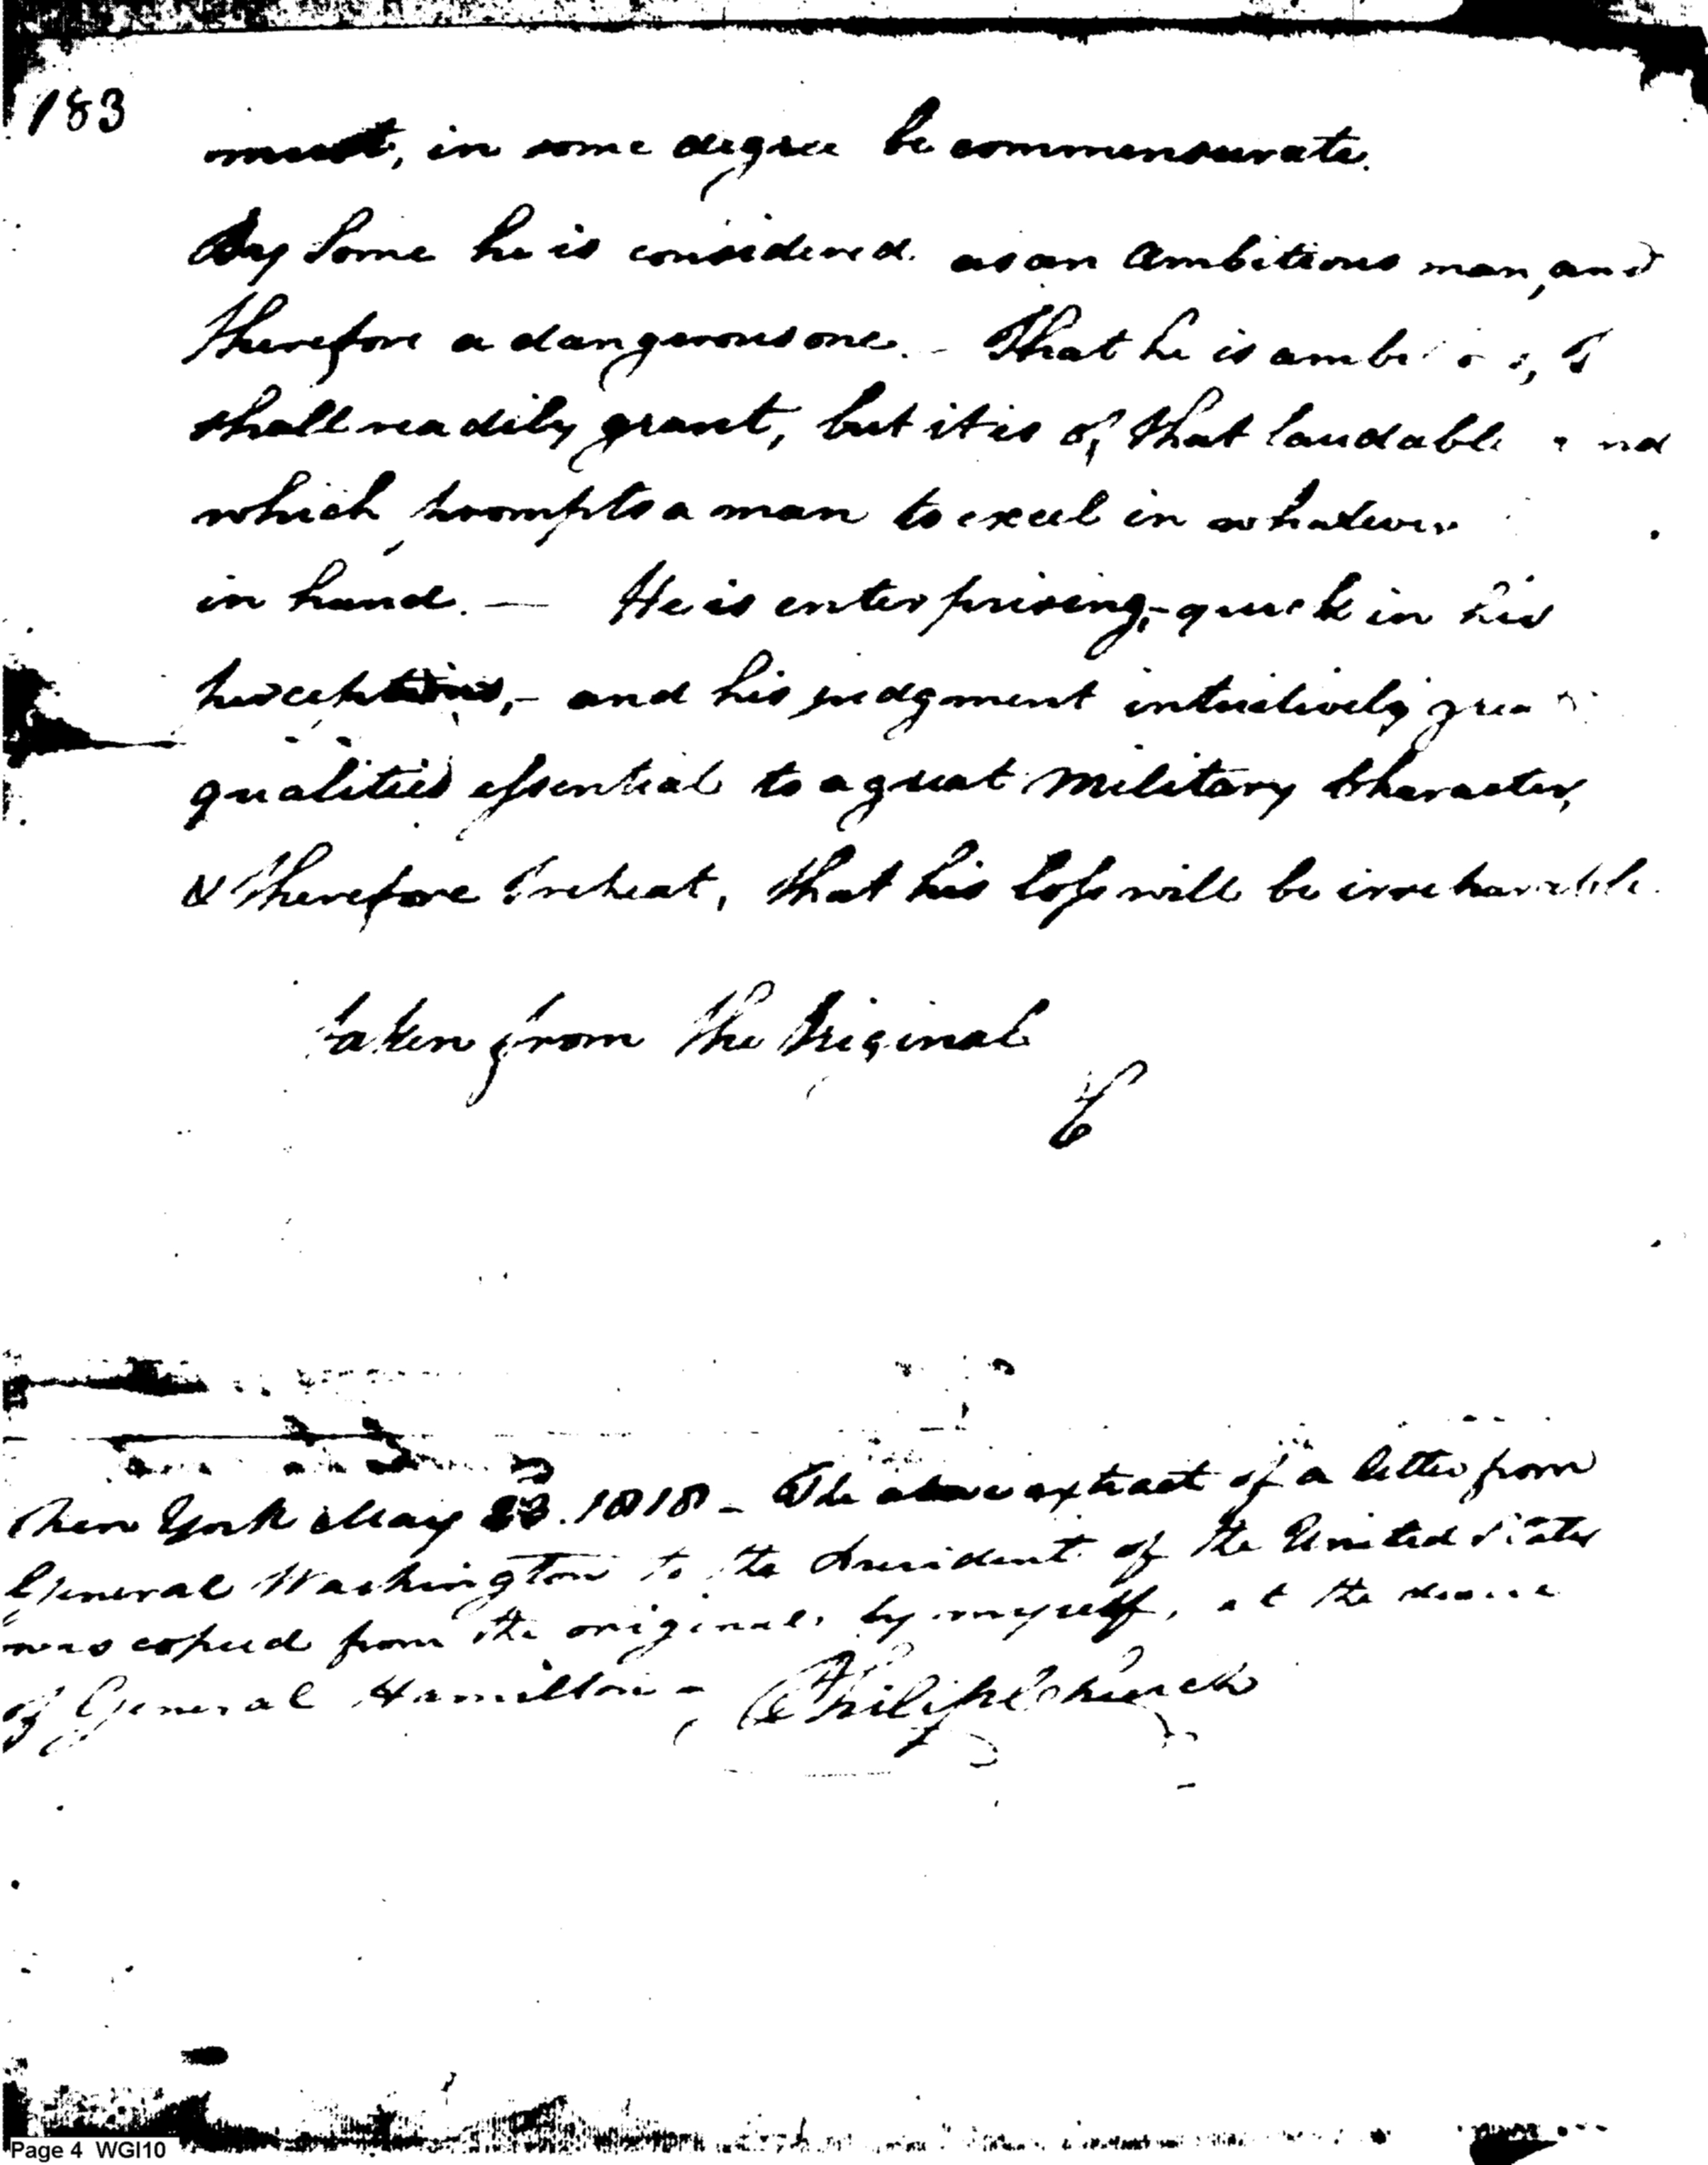 183
must, in some degree be commensurate.
By Some he is considered as an Ambitious man, and
therefore a dangerous one. - That he is
shall readily grant, but it is of that laudable
which prompts a man to excel in whatever
in hand. — He is enterprising, - quick in his
perceptions, - and his judgment intuitively
qualities essential to a great Military Character,
& therefore I repeat, that his loss will be irreparable.
taken from the Original
C
New York May . 1818 - The above extract of a letter from
General Washington to the President of the United States
was copied from the original by myself, at the
of General Hamilton - Philip Church
Page 4 WGI10